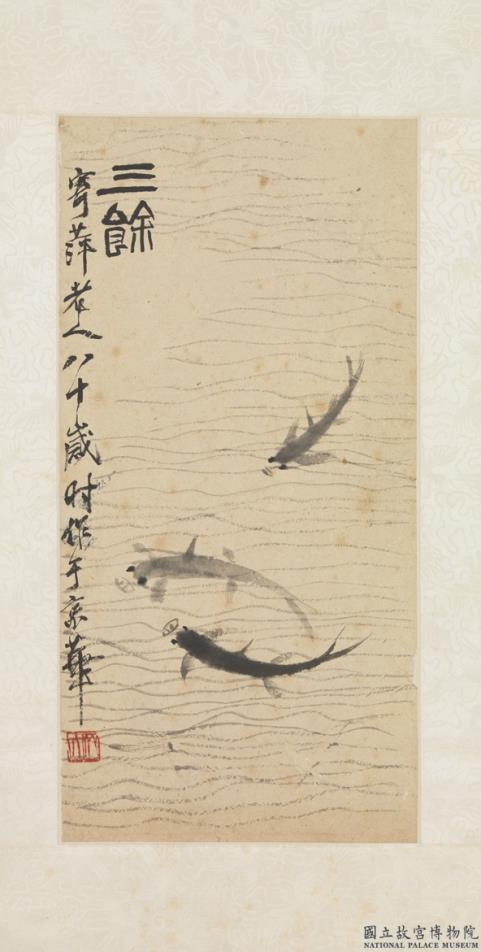 三餘
寄萍老人八十歲时作于京華
國立故宮博物院
NATIONAL PALACE MUSEUM